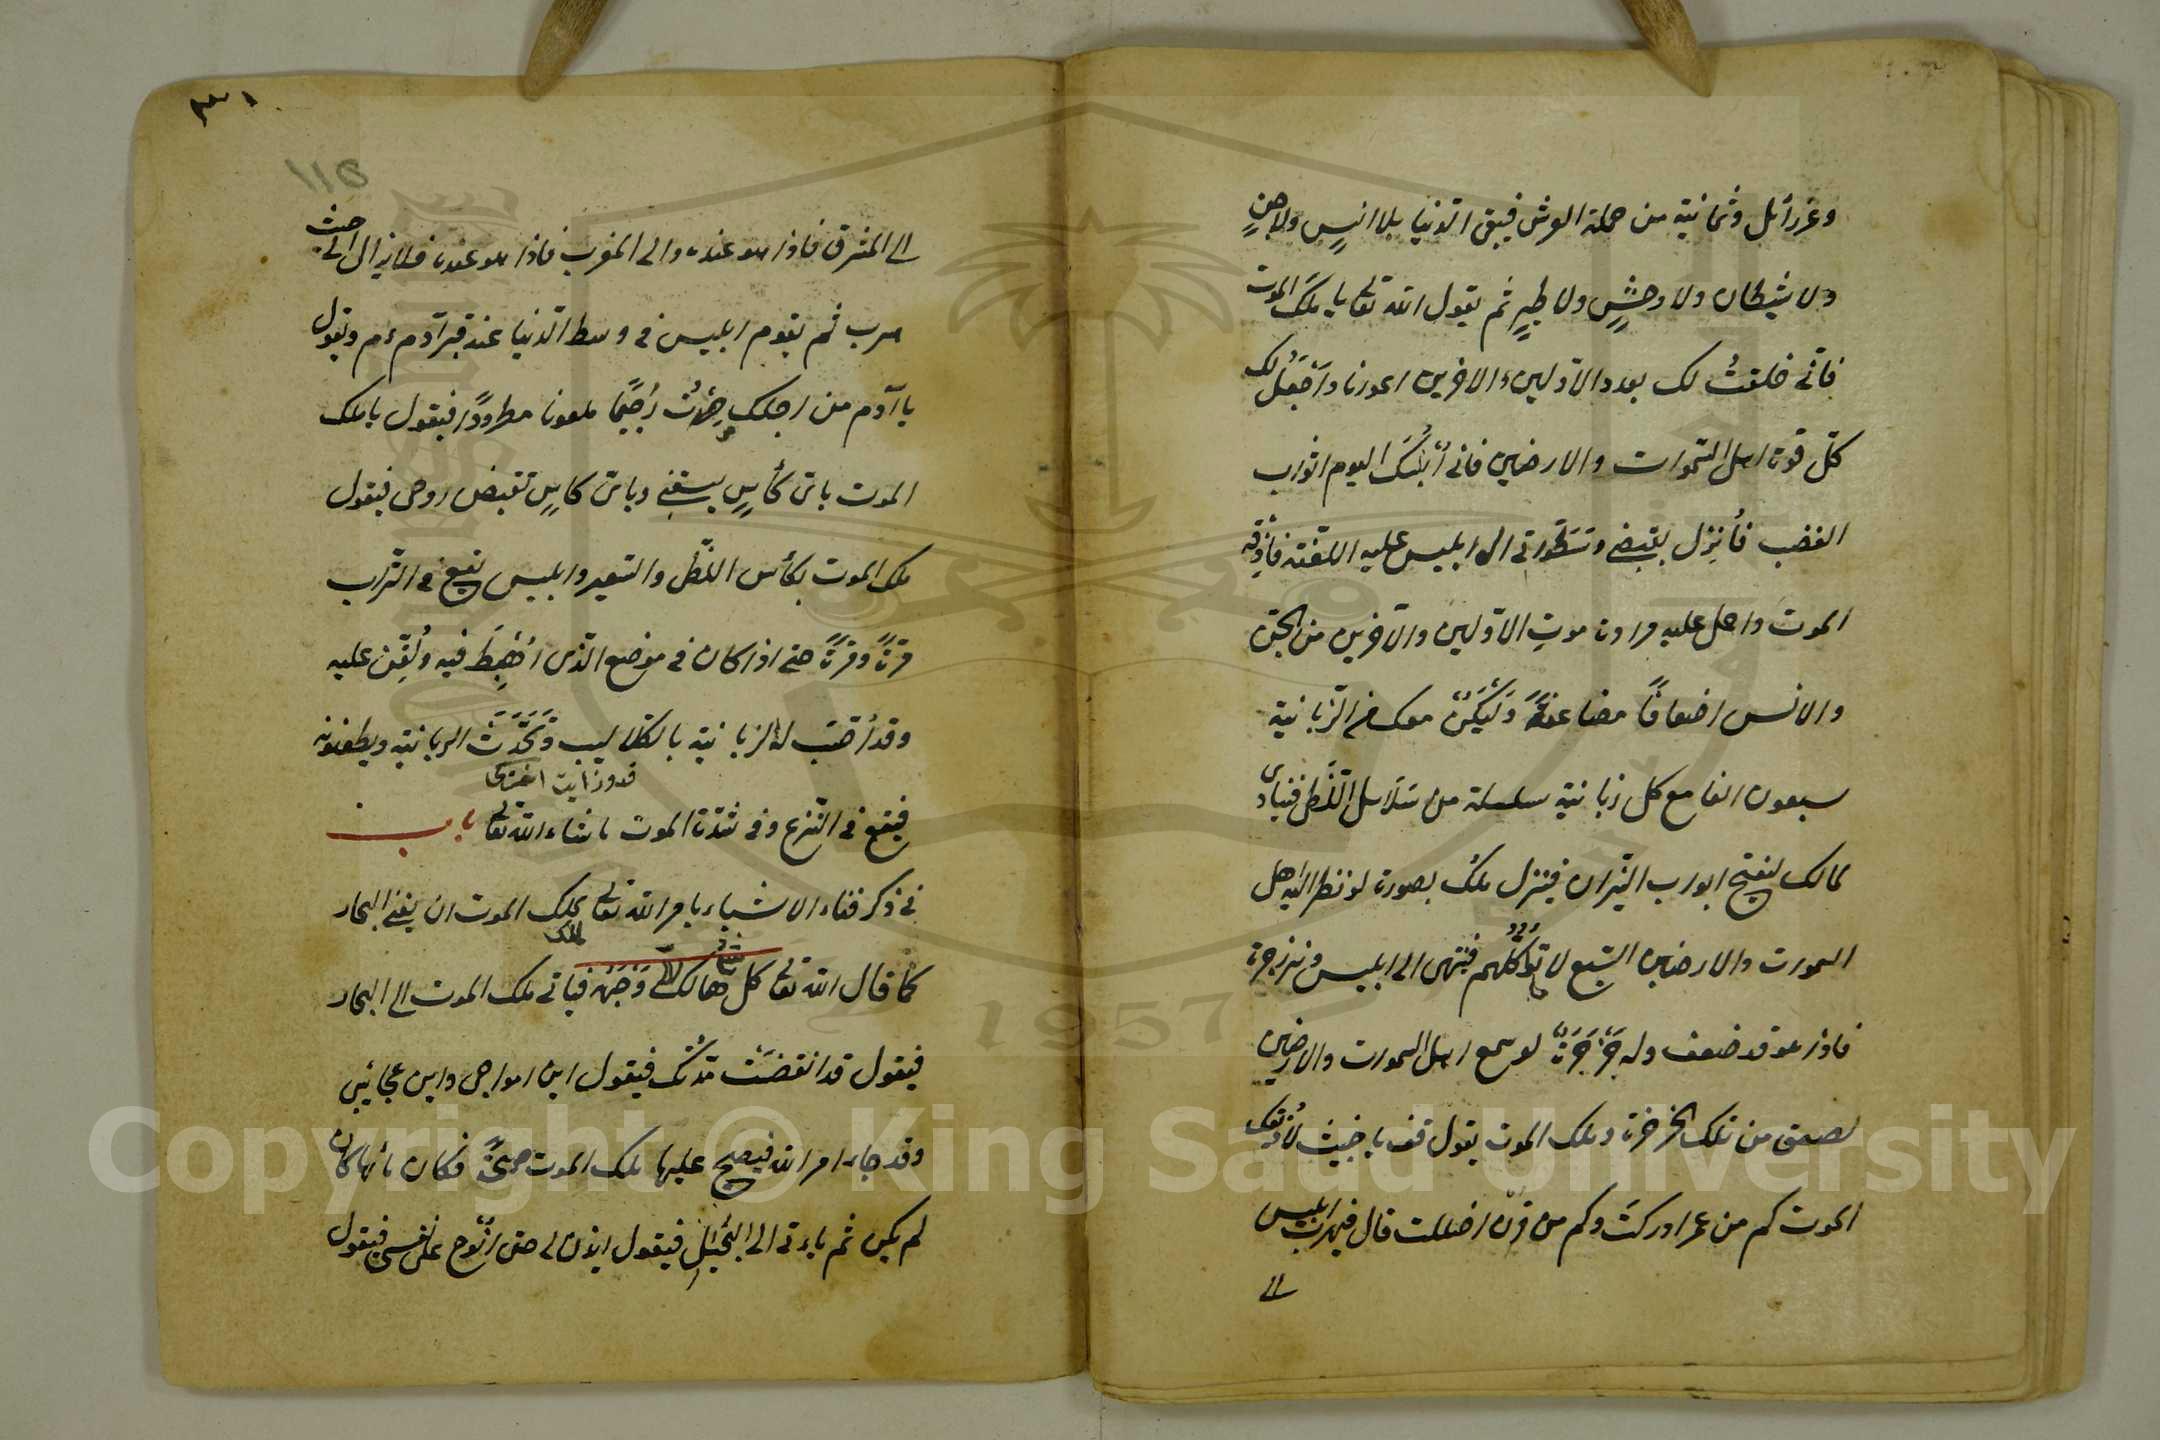 وعزرائل وثمانية من حملة العرش فيبق الدنيا بلا انيس ولا جن
ولا شيطان ولا وحش ولا طير ثم يقول الله تعالى يا ملك الموت
فانى خلقت لك بعدد الاولين والاخرين اعوانا واجعل لك
كل قوة اهل السموات والارضين فانى البسك اليوم اثواب
الغضب فانزل بغضبى وسطوتى الى ابليس عليه اللعنة فاذقه
الموت واحمل عليه مرارة موت الاولين والاخرين من الجن
والانس اضعافا مضاعفة وليكن معك من الزبانية
سبعون الفا مع كل زبانية سلسلة من سلاسل اللظى فينادى
لمالك ليفتح ابواب النيران فينزل ملك بصورة لو نظر اليه اهل
السموات والارضين السبع كلهم فينتهى الى ابليس
فاذا هو قد ضعف وله لو سمع اهل السموات والارضين
لصعق من تلك الخرخرة وملك الموت يقول قف يا خبيث لاذوقنك
الموت كم من عمر ادركت وكم من قرن اضللت قال فيهرب ابليس
الى
١١٥
الى المشرق فاذا هو عنده والى المغرب فاذا هو عنده فلا يزال الى حيث
هرب ثم يقوم ابليس فى وسط الدنيا عند قبر آدم عم ويقول
يا آدم من اجلك صرت رجيما ملعونا مطرودا فيقول يا ملك
الموت باى كأس يسقنى وباى كاس تقبض روحى فيقول
ملك الموت بكأس اللظى والسعير وابليس يقع فى التراب
مرة ومرة حتى اذا كان فى موضع الذى اهبط فيه ولعن عليه
وقد نصب له الزبانية بالكلاليب الزبانية ويطعنونه
فيقع فى النزع وفى شدة الموت ما شاء الله تعالى باب
فى ذكر فناء الاشياء يامر الله تعالى ملك الموت ان يفنى البحار
كما قال الله تعالى كل شئ هالك الا وجهه فيأتى ملك الموت الى البحار
فيقول قد انقضت مدتك فيقول اين امواجى واين عجائبى
وقد جاء امر الله فيصيح عليها ملك الموت صيحة فكان ماءها كان
لم يكن ثم يأتى الى الجبال فيقول ايذن لى حتى انوح على نفسى فيقول
Copyright © King Saud University
1957